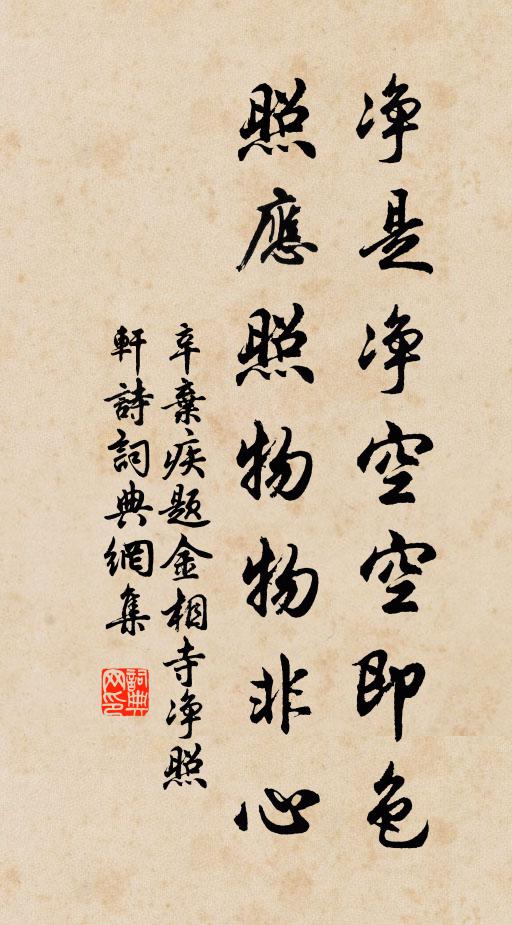 净是净空空即色
照應照物物非心
辛棄疾題金相寺净照
軒詩詞典網集
詞典
网印